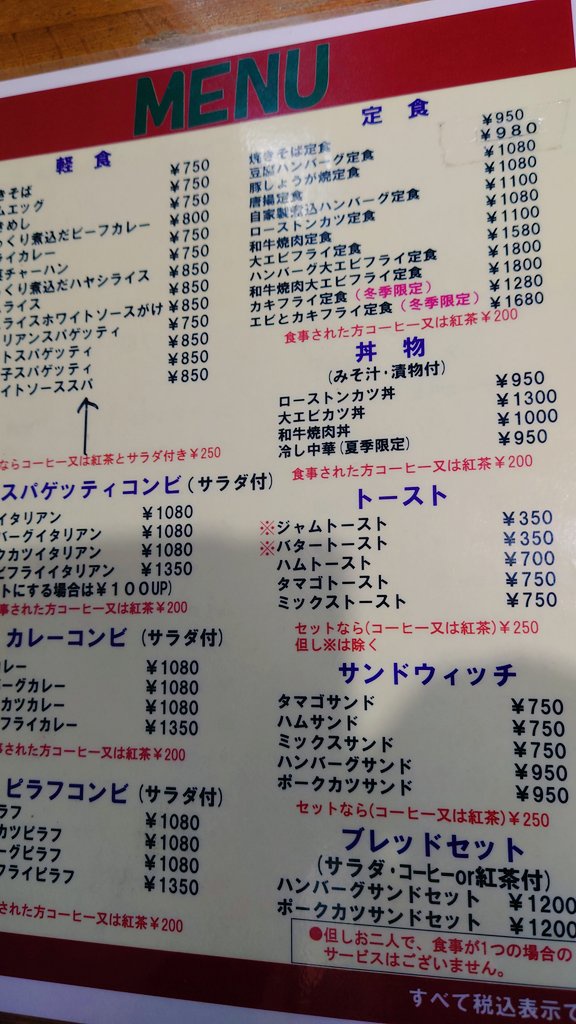 MENU
軽 食
きそば ¥750
ムエッグ ¥750
きめし ¥750
っくり煮込だビーフカレー ¥800
ライカレー ¥750
チャーハン ¥750
っくり煮込だハヤシライス ¥850
ライス ¥850
ライスホワイトソースがけ ¥850
リアンスパゲッティ ¥750
トスパゲッティ ¥850
子スパゲッティ ¥850
イトソーススパ ¥850
ならコーヒー又は紅茶とサラダ付き¥250
スパゲッティコンビ(サラダ付)
イタリアン ¥1080
バーグイタリアン ¥1080
クカツイタリアン ¥1080
ビフライイタリアン ¥1350
トにする場合は¥100UP)
事された方コーヒー又は紅茶¥200
カレーコンビ(サラダ付)
レー ¥1080
バーグカレー ¥1080
クカツカレー ¥1080
フライカレー ¥1350
事された方コーヒー又は紅茶¥200
ピラフコンビ(サラダ付)
ラフ ¥1080
カツピラフ ¥1080
ーグピラフ ¥1080
フライピラフ ¥1350
された方コーヒー又は紅茶¥200
定 食
焼きそば定食 ¥950
豆腐ハンバーグ定食 ¥980
豚しょうが焼定食 ¥1080
唐揚定食 ¥1080
自家製煮込ハンバーグ定食 ¥1100
ローストンカツ定食 ¥1080
和牛焼肉定食 ¥1100
大エビフライ定食 ¥1580
ハンバーグ大エビフライ定食 ¥1800
和牛焼肉大エビフライ定食 ¥1800
カキフライ定食(冬季限定) ¥1280
エビとカキフライ定食(冬季限定) ¥1680
食事された方コーヒー又は紅茶¥200
丼 物
(みそ汁・漬物付)
ローストンカツ丼 ¥950
大エビカツ丼 ¥1300
和牛焼肉丼 ¥1000
冷し中華(夏季限定) ¥950
食事された方コーヒー又は紅茶¥200
トースト
※ジャムトースト ¥350
※バタートースト ¥350
ハムトースト ¥700
タマゴトースト ¥750
ミックストースト ¥750
セットなら(コーヒー又は紅茶)¥250
但し※は除く
サンドウィッチ
タマゴサンド ¥750
ハムサンド ¥750
ミックスサンド ¥750
ハンバーグサンド ¥950
ポークカツサンド ¥950
セットなら(コーヒー又は紅茶)¥250
ブレッドセット
(サラダ・コーヒーor紅茶付)
ハンバーグサンドセット ¥1200
ポークカツサンドセット ¥1200
●但しお二人で、食事が1つの場合の
サービスはございません。
すべて税込表示で